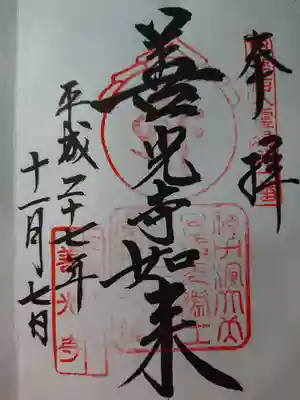 奉拝
善光寺如来
平成二十七年
十一月七日
善光寺